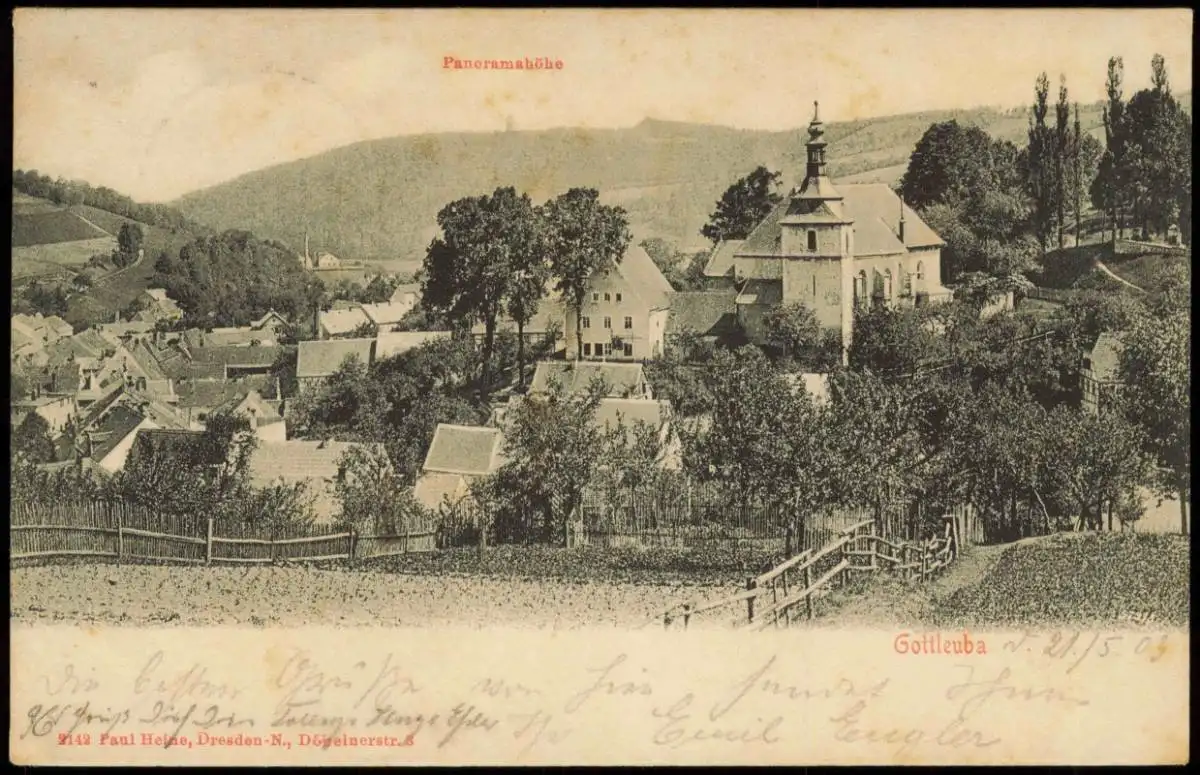 Panoramahöhe
Gottleuba d. 21/5 03
Die besten Grüße von hier sendet Ihnen
Emil Engler
2142 Paul Heine, Dresden-N., Döbelnerstr. 3